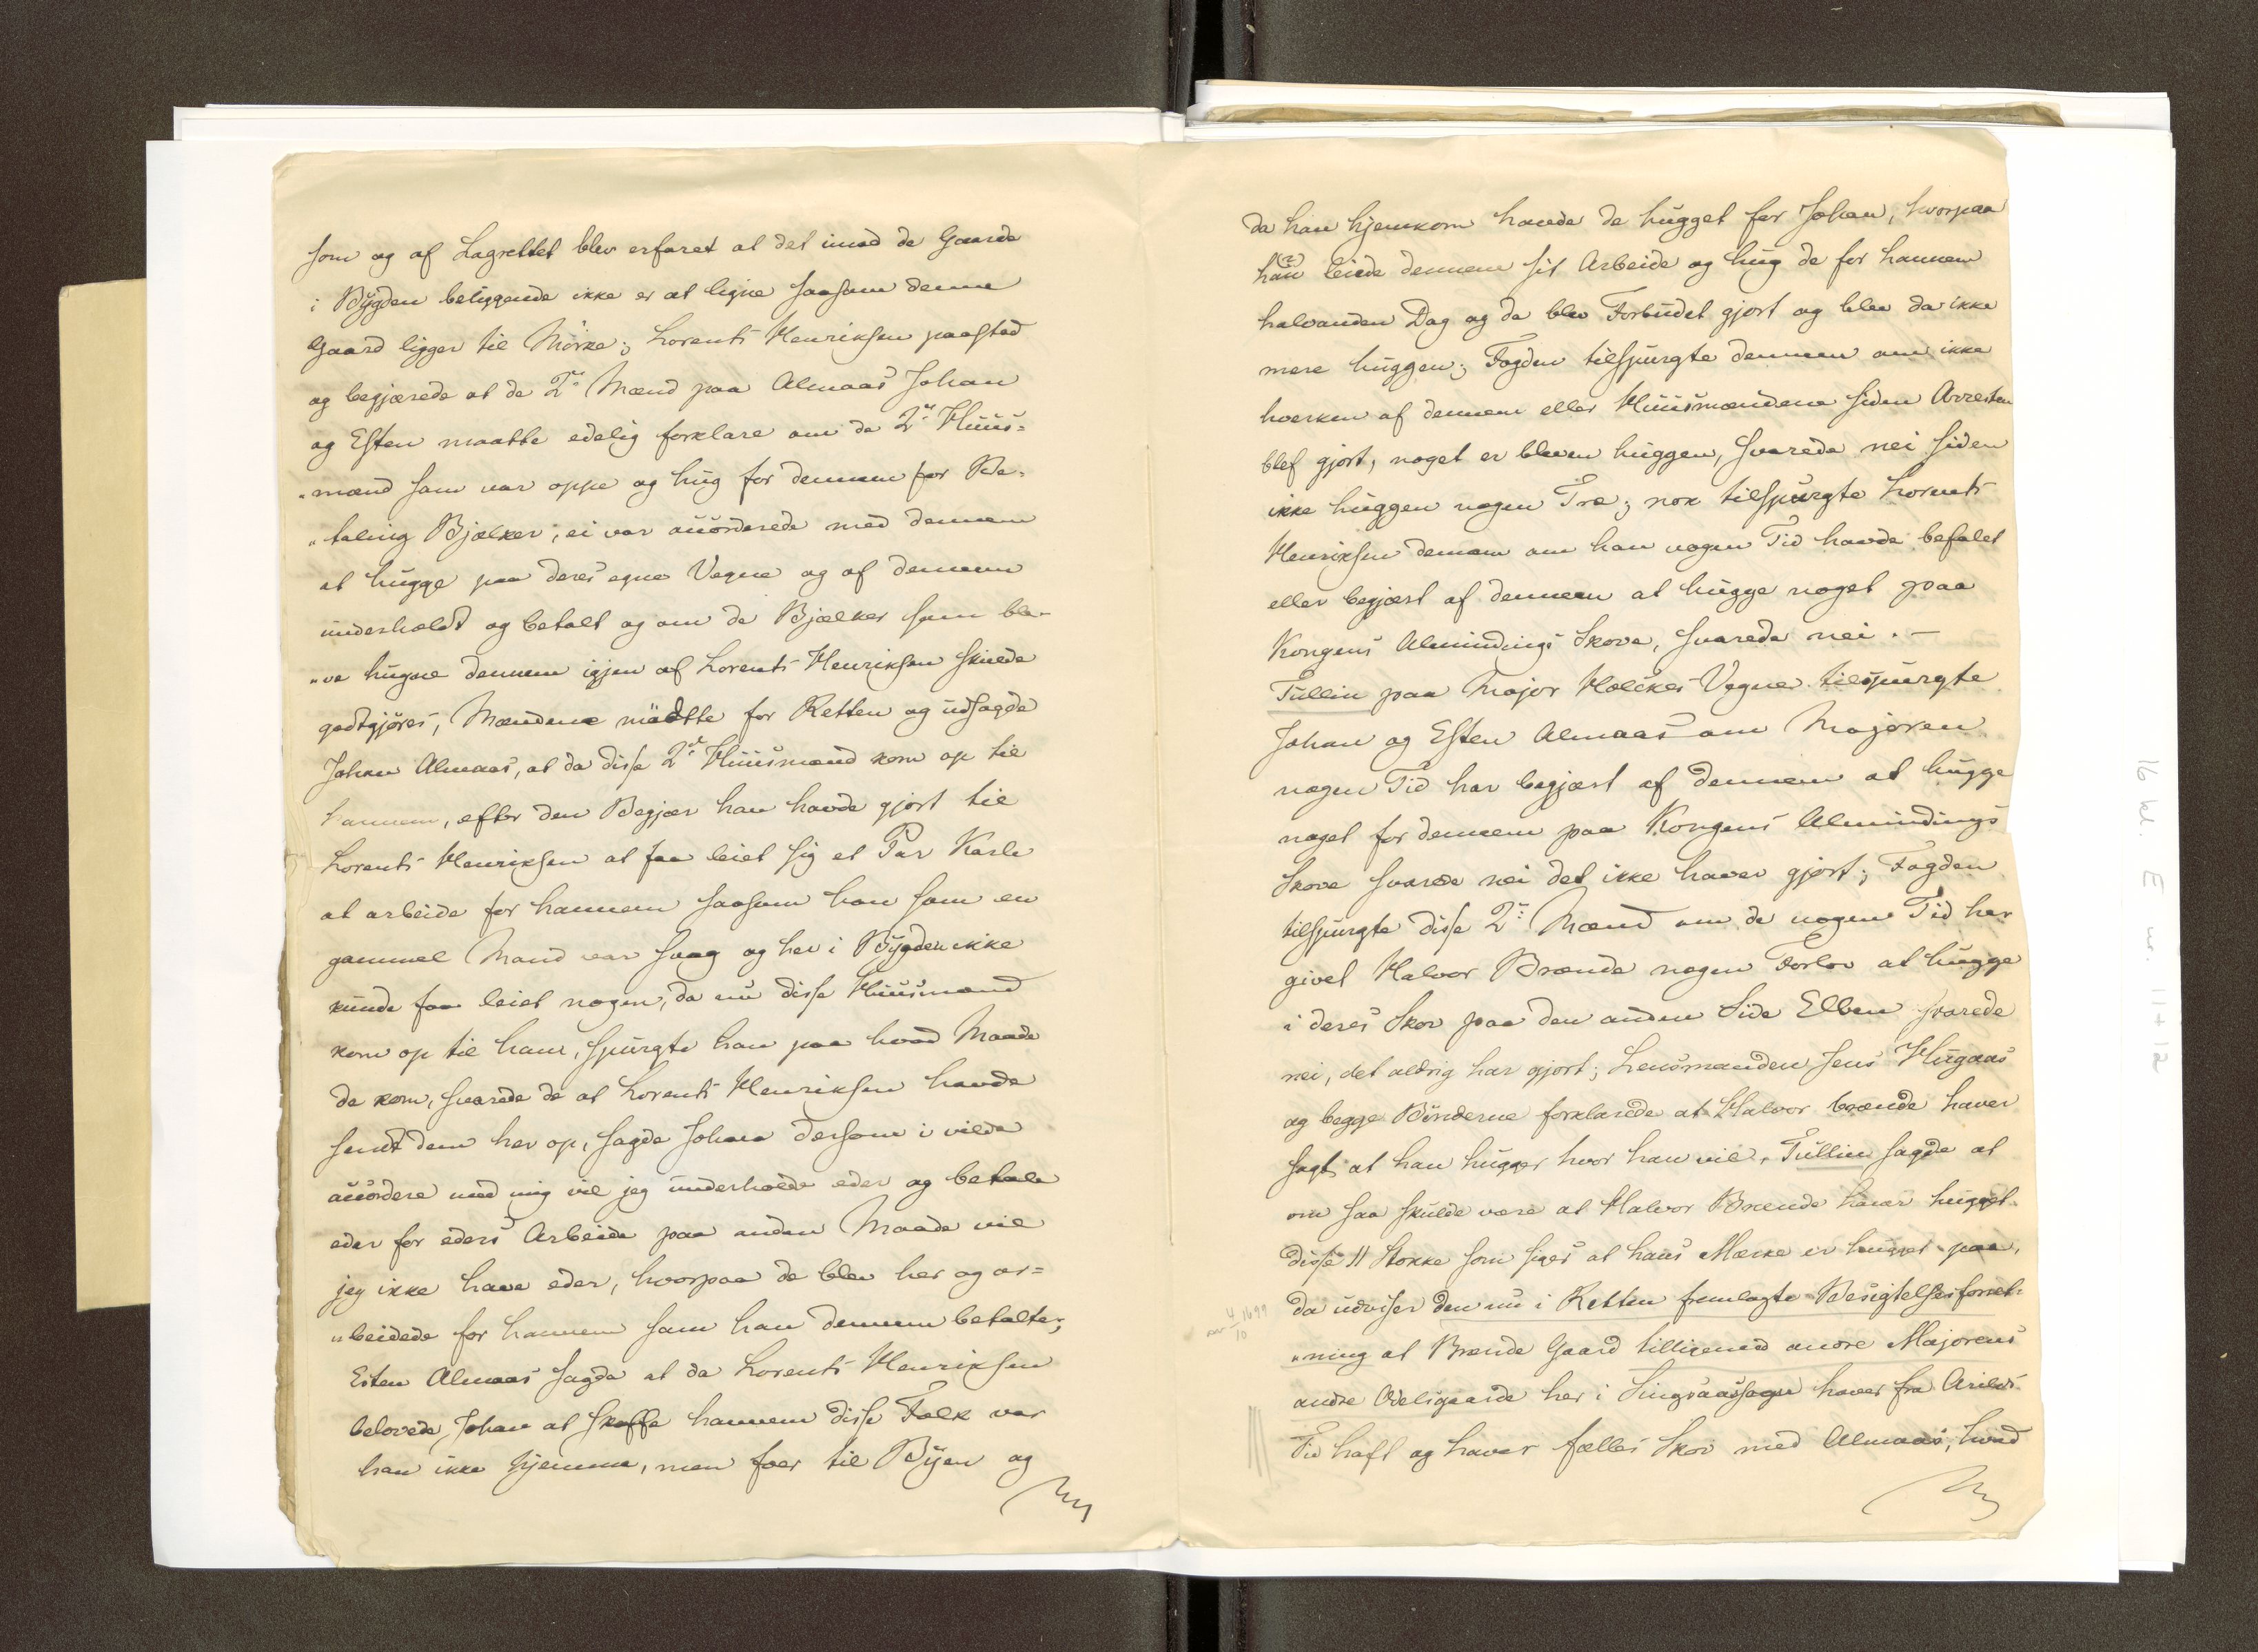 som og af Lagrettet blev erfaret at det imod de Gaarde
i Bygden beliggende ikke er at ligne saasom denne
Gaard ligger til Mörke; Lorents Henriksen paastod
og begjærede at de 2de Mænd paa Almaas Johan
og Esten maatte edelig forklare om de 2de Huus=
„mænd som var oppe og hug for dennem for Be„
„taling Bjælker; ei var acorderede med dennem
at hugge paa deres egne Vegne og af dennem
underholdt og betalt og om de Bjælker som ble„
„ve hugne dennem igjen af Lorents Henriksen skulde
godtgjöres, Mændene mödtte for Retten og udsagde
Johan Almaas, at da disse 2de Huusmænd kom op til
hannem, efter den Begjær han havde gjort til
Lorents Henriksen at faa leiet sig et Par Karle
at arbeide for hannem saasom han som en
gammel Mand var svag og her i Bygden ikke
kunde faa leiet nogen, da nu disse Huusmænd
kom op til ham, spurgte han paa hvad Maade
de kom, svarede de at Lorents Henriksen havde
sendt dem her op, sagde Johan dersom i vilde
accordere med mig vil jeg underholde eder og betale
eder for eders Arbeide paa anden Maade vil
jeg ikke have eder, hvorpaa de blev her og ar=
„beidede for hannem som han dennem betalte;
Esten Almaas sagde at da Lorents Henriksen
belovede Johan at skaffe hannem disse Folk var
han ikke hjemme, men foer til Byen og
da han hjemkom havde de hugget for Johan, hvorpaa
han leiede dennem sit Arbeide og hug de for hannem
halvanden Dag og da blev Forbudet gjort og blev da ikke
mere huggen; Fogden tilspurgte dennem om ikke
hverken af dennem eller Huusmændene siden Arresten
blef gjort, noget er bleven huggen, svarede nei siden
ikke huggen nogen Træ; nok tilspurgte Lorents
Henriksen dennem om han nogen Tid havde befalet
eller begjært af dennem at hugge noget paa
Kongens Almindings Skove, svarede nei. –
Tullin paa Major Holckes Vegne tilspurgte
Johan og Esten Almaas om Majoren
nogen Tid har begjært af dennem at hugge
noget for dennem paa Kongens Almindings
Skove svarede nei det ikke haver gjort; Fogden
tilspurgte disse 2de Mænd om de nogen Tid har
givet Halvor Brænde nogen Forlov at hugge
i deres Skov paa den anden Side Elven svarede
nei, det aldrig har gjort; Lensmanden Jens Hugaas
og begge Bönderne forklarede at Halvor brænde haver
sagt at han hugger hvor han vil, Tullin sagde at
om saa skulde være at Halvor Brænde haver hugget
disse 11 Stokke som siges at hans Mærke er hugget paa,
da udviser den nu i Retten fremlagte Besigtelsesforret„
av 4/10 1699
„ning at Brænde Gaard tilligemed andre Majorens
andre Odelsgaarde her i Singsaassogn haver fra Arilds
Tid haft og haver fælles Skov med Almaas, hvad
16 kl. E nr. 11+12